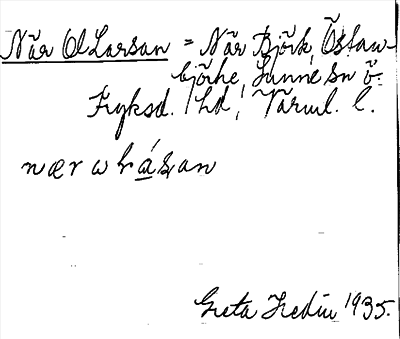 När Ol Larsan = När Björk, Östan-
björke, Sunne sn Ö.
Fryksd. hd, Värml. l.
nær w lɑ́san
Greta Hedin 1935.